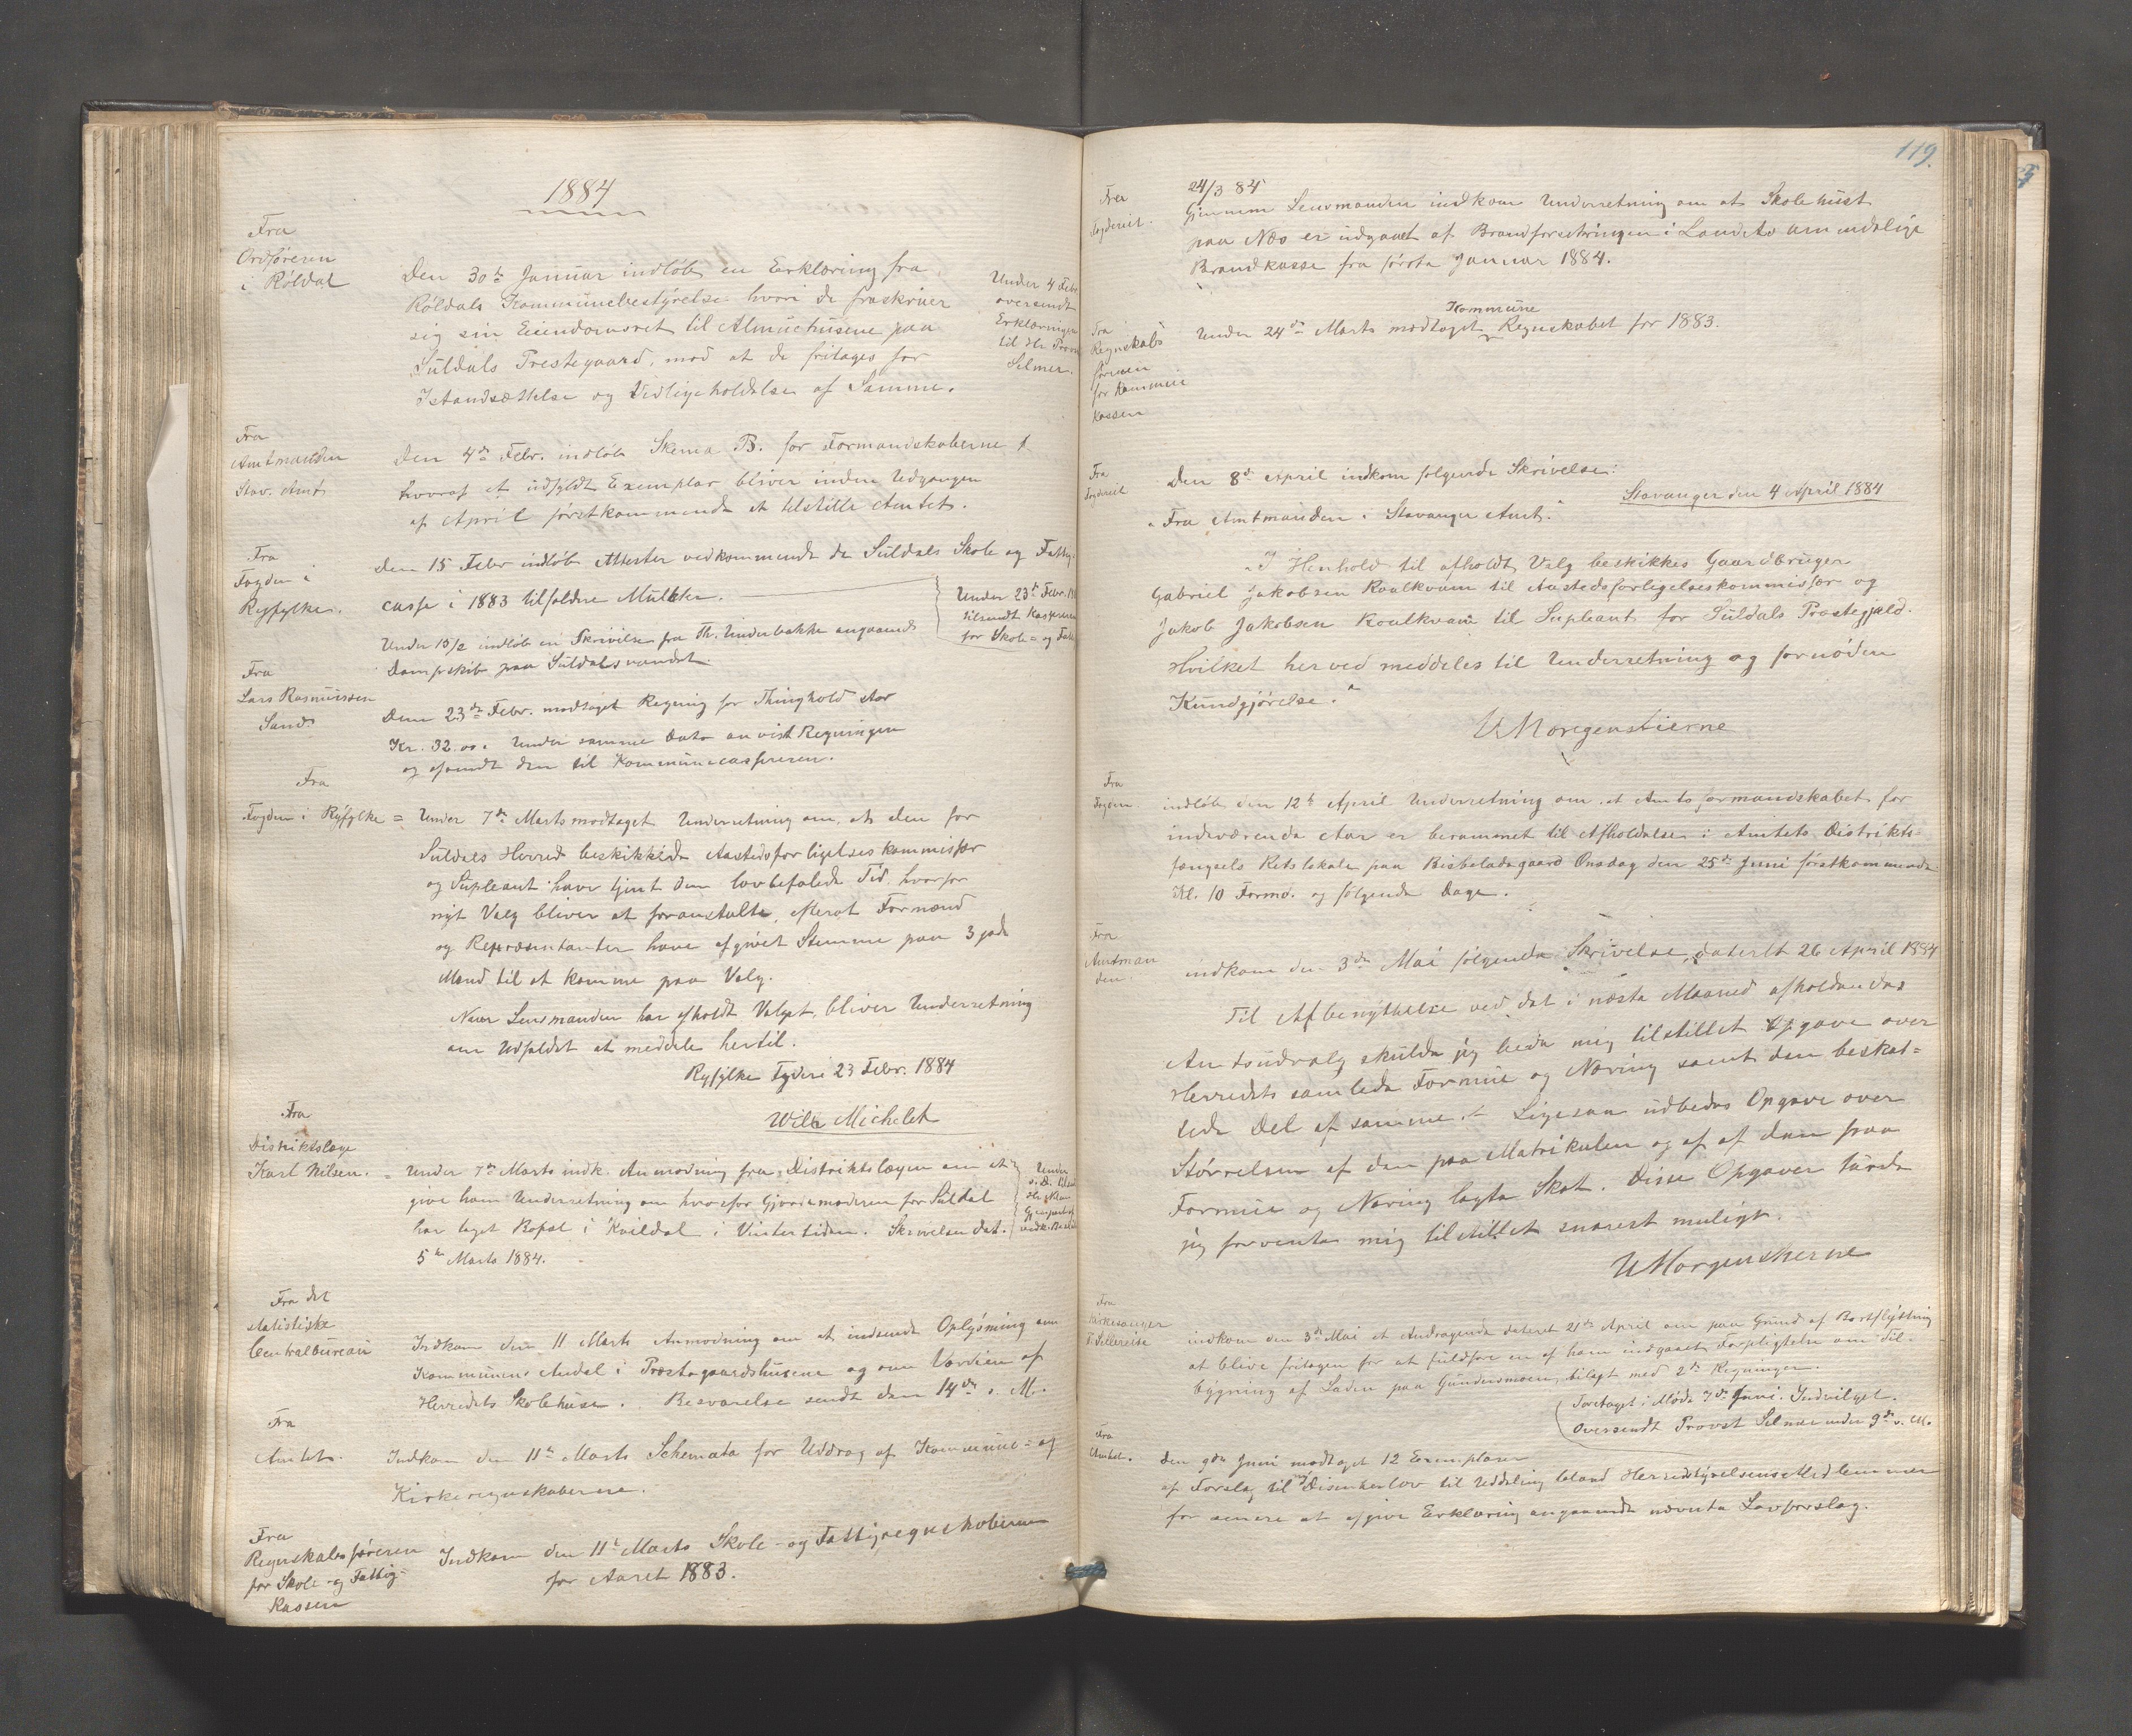 1884
Fra
Ordføreren
i Røldal
Den 30te Januar indløb en Erklæring fra
Røldals Kommunebestyrelse hvori de fraskriver
sig sin Eiendomsret til Almuehusene paa
Suldals Prestegaard, mod at de fritages for
Istandsættelse og Vedligeholdelse af Samme.
Under 4 Febr.
oversendt
Erklæringen
til Hr. Provst
Selmer.
Fra
Amtmanden
Stav. Amt
Den 4de Febr. indløb Skema B. for Formandskaberne
hvoraf et udfyldt Exemplar bliver inden Udgangen
af April førstkommende at tilstille Amtet.
Fra
Fogden i
Ryfylke.
Den 15 Febr indløb Attester vedkommende de Suldals Skole og Fattig-
casse i 1883 tilfaldne Mulkter.
Under 23de Febr.
tilsendt Kassereren
for Skole- og
Under 15/2 indløb en Skrivelse fra Th. Underbakke angaaende
Dampskib paa Suldalsvandet
Fra
Lars Rasmussen
Sand
Den 23de Febr. modtaget Regning for Thinghold stor
Kr. 32.00. Under samme Dato anvist Regningen
og afsendt den til Kommunecassereren.
Fra
Fogden i Ryfylke =
Under 7de Marts modtaget Underretning om, at den for
Suldals Herred beskikkede Aastedsforligelseskommissær
og Supleant have tjent den lovbefalede Tid, hvorfor
nyt Valg bliver at foranstalte, efterat Formænd
og Repræsentanter have afgivet Stemme paa 3 gode
Mænd til at komme paa Valg.
Naar Lensmanden har afholdt Valget, bliver Underretning
om Udfaldet at meddele hertil.
Ryfylke Fogderi 23 Febr. 1884
Wilh Michelet
Fra
Distriktslæge
Karl Nilsen. =
Under 7de Marts indk. Anmodning fra Distriktslægen om at
give ham Underretning om hvorfor Gjordemoderen for Suldal
har taget Bopæl i Kvildal i Vintertiden. Skrivelsen dat.
5te Marts 1884.
Under
s. D.
Fra det
statistiske
Centralbureau
Indkom den 11 Marts Anmodning om at indsende Oplysning om
Kommunens Andel i Præstegaardshusene og om Værdien af
Herredets Skolehuse. Besvarelse sendt den 14de s. M.
Fra
Amtet.
Indkom den 11te Marts Schemata for Uddrag af Kommune- og
Kirkeregnskaberne.
Fra
Regnskabsføreren
for Skole- og Fattig-
Kassen
Indkom den 11te Marts Skole- og Fattigregnskaberne
for Aaret 1883.
119.
Fra
Fogderiet.
24/3 84
Gjennem Lensmanden indkom Underretning om at Skolehuset
paa Næs er udgaaet af Brandforsikringen i Landets almindelige
Brandkasse fra første Januar 1884.
Fra
Regnskabs
føreren
for Kommune
kassen
Kommune
Under 24de Marts modtaget Regnskabet for 1883.
Fra
Fogderiet
Den 8de April indkom følgende Skrivelse:
Stavanger den 4 April 1884
"Fra Amtmanden i Stavanger Amt."
"I Henhold til afholdt Valg beskikkes Gaardbruger
Gabriel Jakobsen Kvalkvam til Aastedsforligelseskommissær og
Jakob Jakobsen Kvalkvam til Supleant for Suldals Præstegjæld.
Hvilket herved meddeles til Underretning og fornøden
Kundgjørelse."
U Morgenstierne
Fra
Fogden
indløb den 12te April Underretning om at Amtsformandskabet for
indeværende Aar er berammet til Afholdelse i Amtets Distrikts-
fængsels Retslokale paa Bispeladegaard Onsdag den 25de Juni førstkommende
Kl. 10 Formd. og følgende Dage.
Fra
Amtman
den.
indkom den 3de Mai følgende Skrivelse, dateret 26 April 1884
Til Afbenyttelse ved det i næste Maaned afholdendes
Amtsudvalg skulde jeg bede mig tilstillet Opgave over
Herredets samlede Formue og Næring samt den beskat=
tede Del af samme. – Ligesaa udbedes Opgave over
Størrelsen af den paa Matrikulen og af af den paa
Formue og Næring lagte Skat. Disse Opgaver turde
jeg forvente mig tilstillet snarest muligt.
U Morgenstierne
Fra
Kirkesanger
indkom den 3de Mai et Andragende dateret 21de April om paa Grund af Bortflytning
at blive fritagen for at fuldføre en af ham indgaaet Forpligtelse om Til-
bygning af Laden paa Gunders­moen, bilagt med 2de Regninger.
Foretaget i Møde 7de Juni. Indvilget.
Oversendt Provst Selmer under 9de s. M.
Fra
Amtet.
Den 9de Juni modtaget 12 Exemplarer
af Forslag til ny Disenterlov til Uddeling bland Herredstyrelsens Medlemmer
for senere at afgive Erklæring angaaende nævnte Lovforslag.